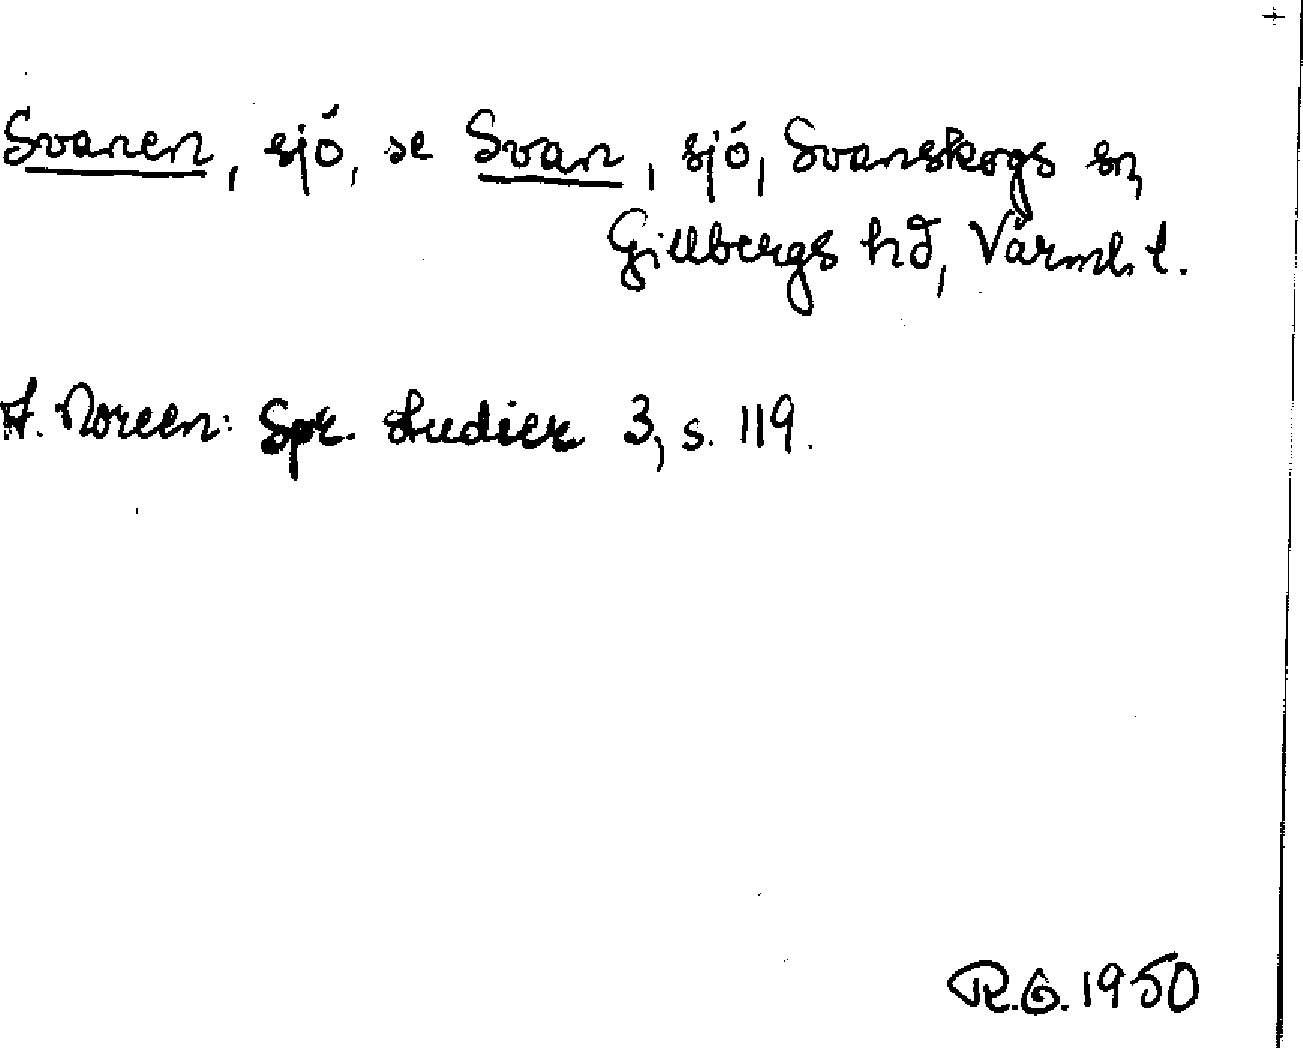 Svanen, sjö, se Svan, sjö, Svanskogs sn,
Gillbergs hd, Värml. l.
A. Noreen: Spr. studier 3, s. 119.
R.G. 1950